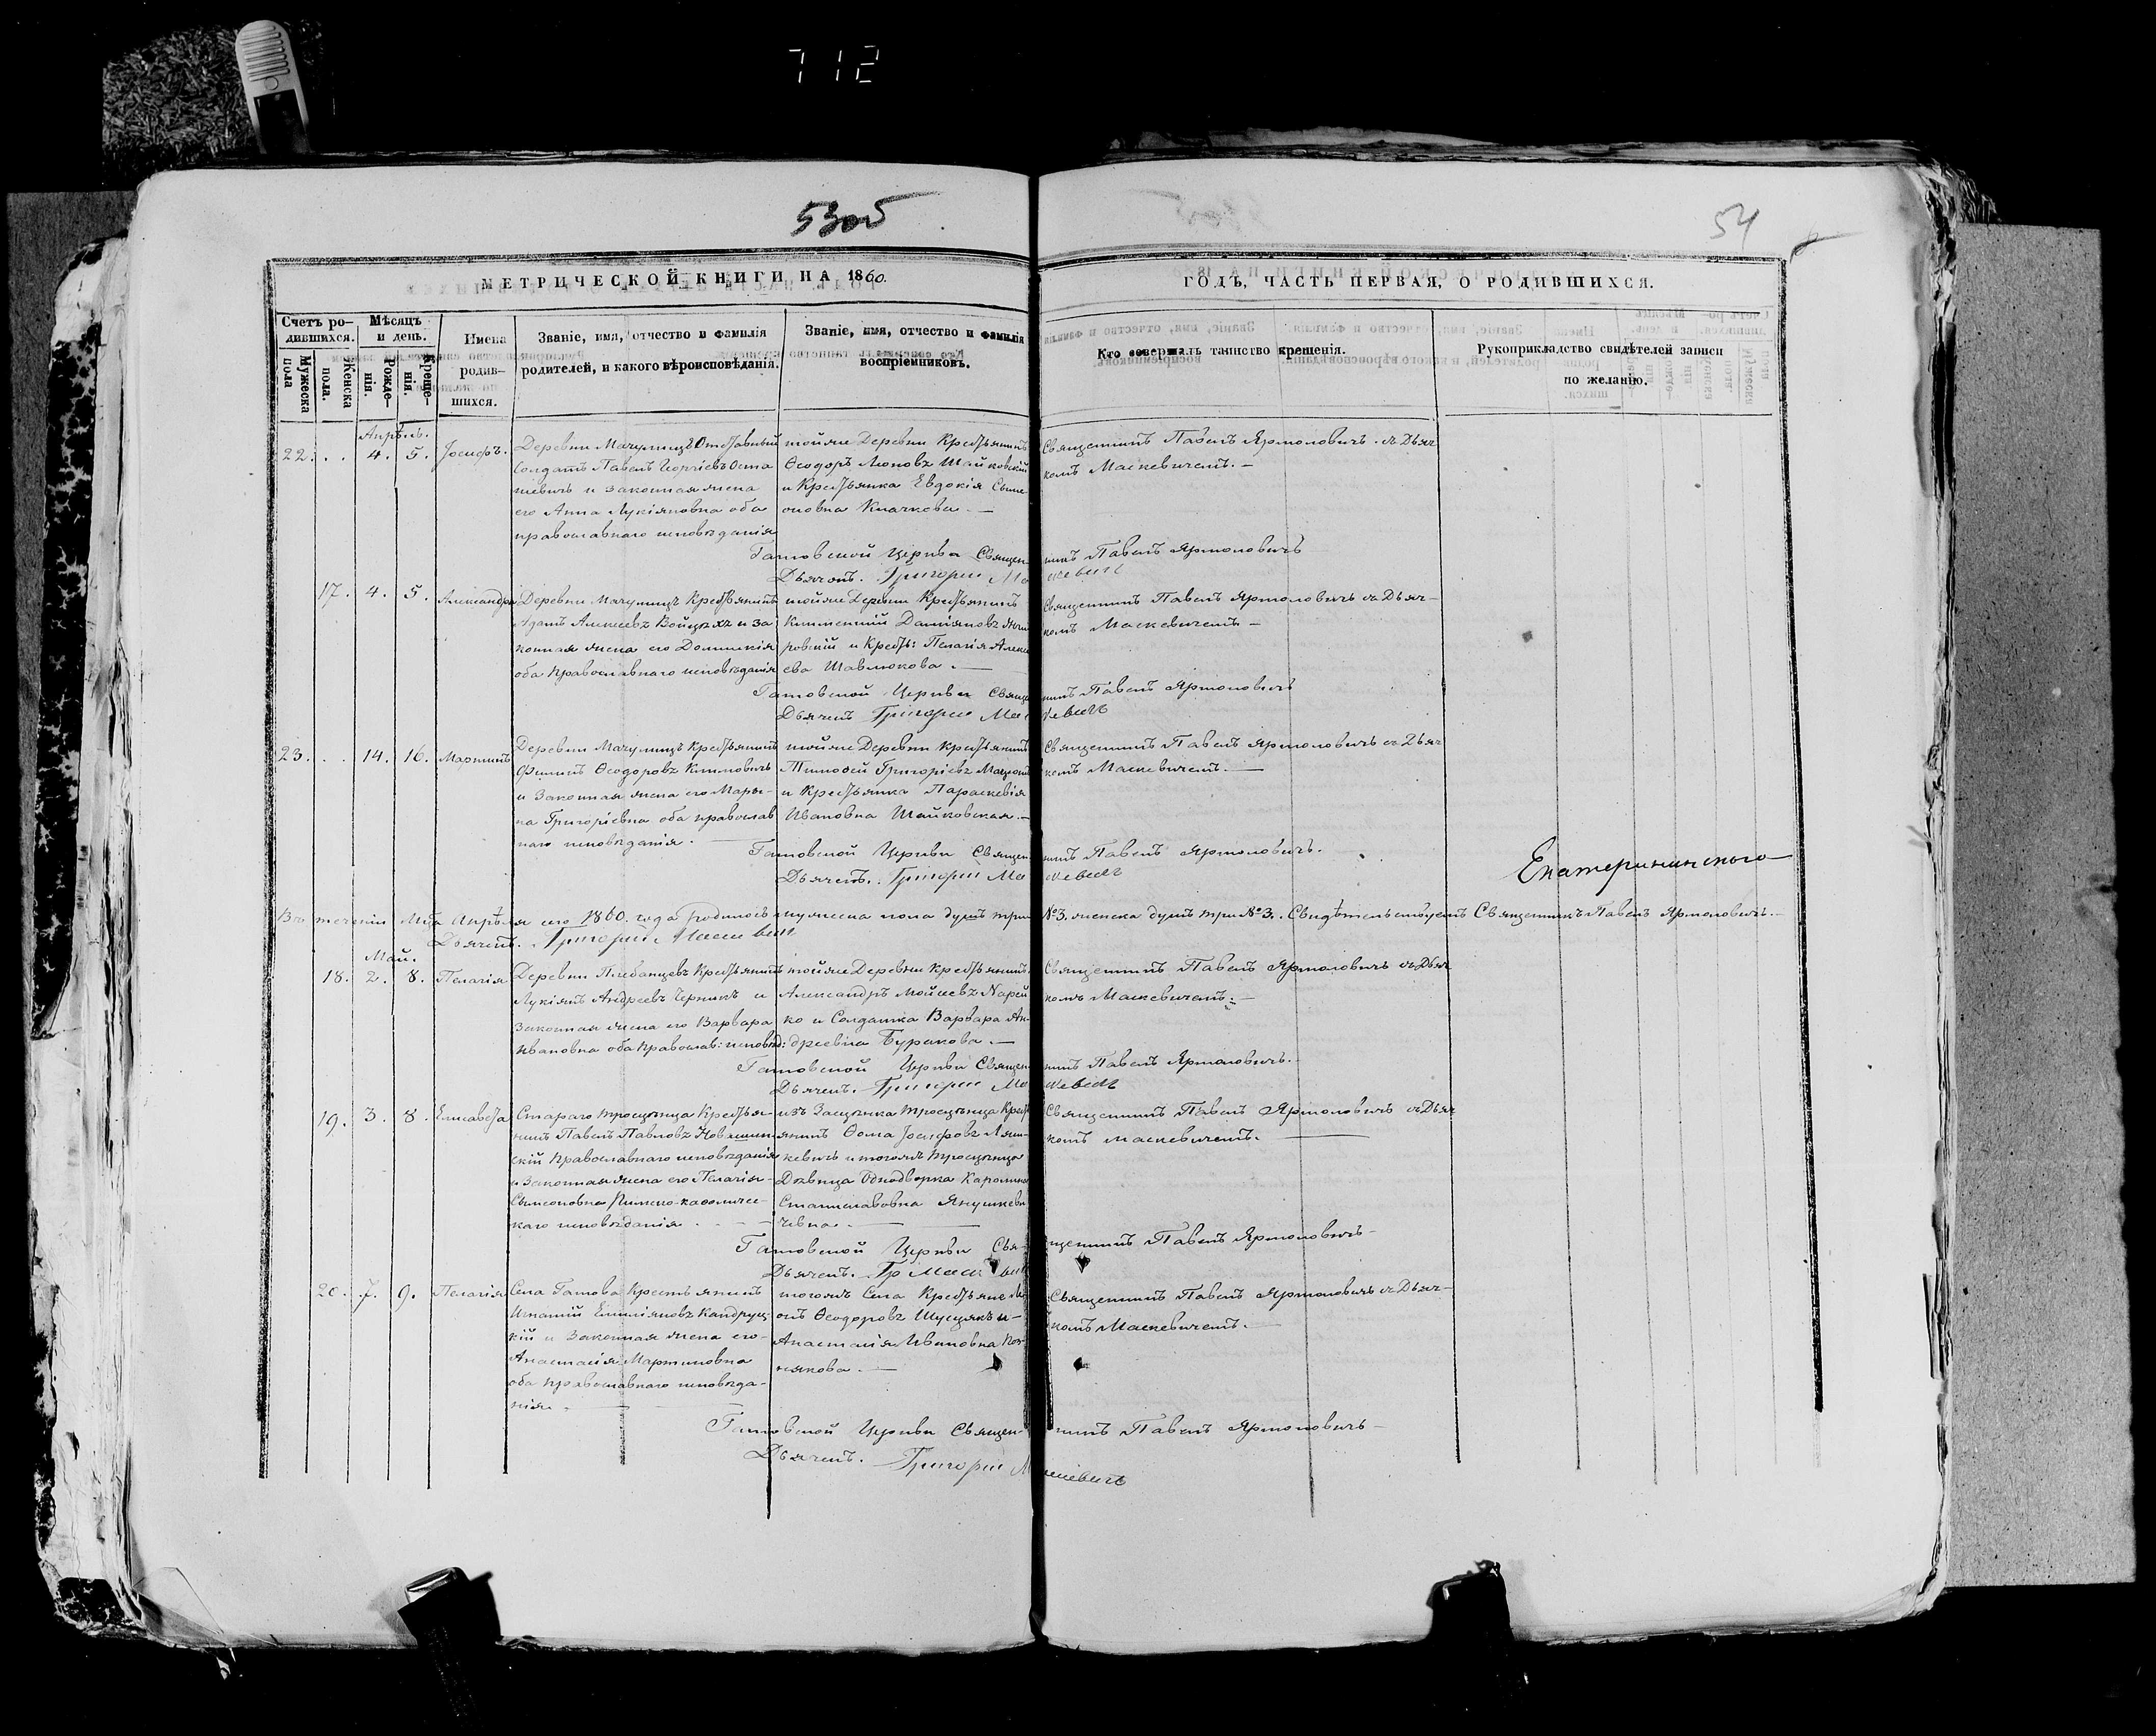 712
53об
54
МЕТРИЧЕСКОЙ КНИГИ НА 1860.
ГОДЪ, ЧАСТЬ ПЕРВАЯ, О РОДИВШИХСЯ.
Счетъ ро-
дившихся.
Мужеска
пола
Женска
пола.
Мѣсяцъ
и день.
Рожде-
нія.
Креще-
нія.
Имена
родив-
шихся.
Званіе, имя, отчество и фамилія
родителей, и какого вѣроисповѣданія.
Званіе, имя, отчество и фамилія
воспріемниковъ.
Кто совершалъ таинство крещенія.
Рукоприкладство свидѣтелей записи
по желанію.
Апрѣль.
22. . . 4. 5. Іосифъ.
Деревни Мачулищъ Отставный
Солдатъ Павелъ Георгіевъ Оста
шевичъ и законная жена
его Анна Лукіяновна оба
православнаго исповѣданія
тойже Деревни Крестьянинъ
Ѳеодоръ Шайковскій
и Крестьянка Евдокія Симе
оновна
Священникъ Павелъ Ярмоловичъ съ Дьяч
комъ Маскевичемъ. —
Гатовской Церкви Священникъ Павелъ Ярмоловичъ
Дьячекъ. Григорій Маскевичъ
17. 4. 5. Александра
Деревни Мачулищъ Крестьянинъ
Адамъ Алексеевъ Войцехъ и за
конная жена его Домникія
оба Православнаго исповѣданія
тойже Деревни Крестьянинъ
Климентій Даміяновъ
ровскій и Крест: Пелагія Алексе
ева Шавлюкова. —
Священникъ Павелъ Ярмоловичъ съ Дьяч-
комъ Маскевичемъ —
Гатовской Церкви Священникъ Павелъ Ярмоловичъ
Дьячекъ Григорій Маскевичъ
23. . . 14. 16. Мартинъ
Деревни Мачулищъ Крестьянинъ
Филипъ Ѳеодоровъ Климовичъ
и Законная жена его Марья-
на Григоріевна оба православ
наго исповѣданія. —
тойже Деревни Крестьянинъ
Тимоѳей Григоріевъ
и Крестьянка Параскевія
Ивановна Шайковская. —
Священникъ Павелъ Ярмоловичъ съ Дьяч
комъ Маскевичемъ. —
Гатовской Церкви Священникъ Павелъ Ярмоловичъ.
Дьячекъ. Григорій Маскевичъ
Екатерининского
Въ теченіи Мца Апрѣля сего 1860. года родилось мужеска пола душъ три №3. женска душъ три №3. Свидѣтельствуетъ Священникъ Павелъ Ярмоловичъ. —
Дьячекъ. Григорій Маскевичъ
Май.
18. 2. 8. Пелагія
Деревни Плебанцевъ Крестьянинъ
Лукіянъ Андреевъ Черникъ и
Законная жена его Варвара
Ивановна оба Православ: исповѣд:
тойже Деревни Крестьянинъ
Александръ Мойсеевъ Нарей
ко и Солдатка Варвара Ан-
дреевна Буракова. —
Священникъ Павелъ Ярмоловичъ съ Дьяч
комъ Маскевичемъ. —
Гатовской Церкви Священникъ Павелъ Ярмоловичъ. —
Дьячекъ. Григорій Маскевичъ
19. 3. 8. Елисавета
Стараго Тросцянца Крестья-
нинъ Павелъ Павловъ
скій Православнаго исповѣданія
и Законная жена его Пелагія
Симеоновна Римско-каѳоличес-
каго исповѣданія. —
изъ Засцянка Тросцянца Крест
янинъ Ѳома Іосифовъ Ляш-
кевичъ и тогожъ Тросцянца
Дѣвица Однодворка Каролина
Станиславовна Янушкеви
чевна. —
Священникъ Павелъ Ярмоловичъ съ Дьяч
комъ Маскевичемъ. —
Гатовской Церкви Священникъ Павелъ Ярмоловичъ —
Дьячекъ. Гр Маскевичъ
20. 7. 9. Пелагія
Села Гатова Крестьянинъ
Игнатій Емиліяновъ
кій и Законная жена его
Анастасія Мартиновна
оба православнаго исповѣда-
нія. —
тогожъ Села Крестьяне
Ѳеодоровъ и
Анастасія Ивановна
Священникъ Павелъ Ярмоловичъ съ Дьяч-
комъ Маскевичемъ. —
Гатовской Церкви Священникъ Павелъ Ярмоловичъ —
Дьячекъ. Григорій Маскевичъ